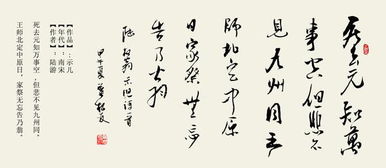 死去元知萬
事空但悲不
見九州同王
師北定中原
日家祭無忘
告乃翁
陆放翁示児诗一首
甲午夏
【作品】:示儿
【年代】:南宋
【作者】:陆游
死去元知万事空，但悲不见九州同。
王师北定中原日，家祭无忘告乃翁。